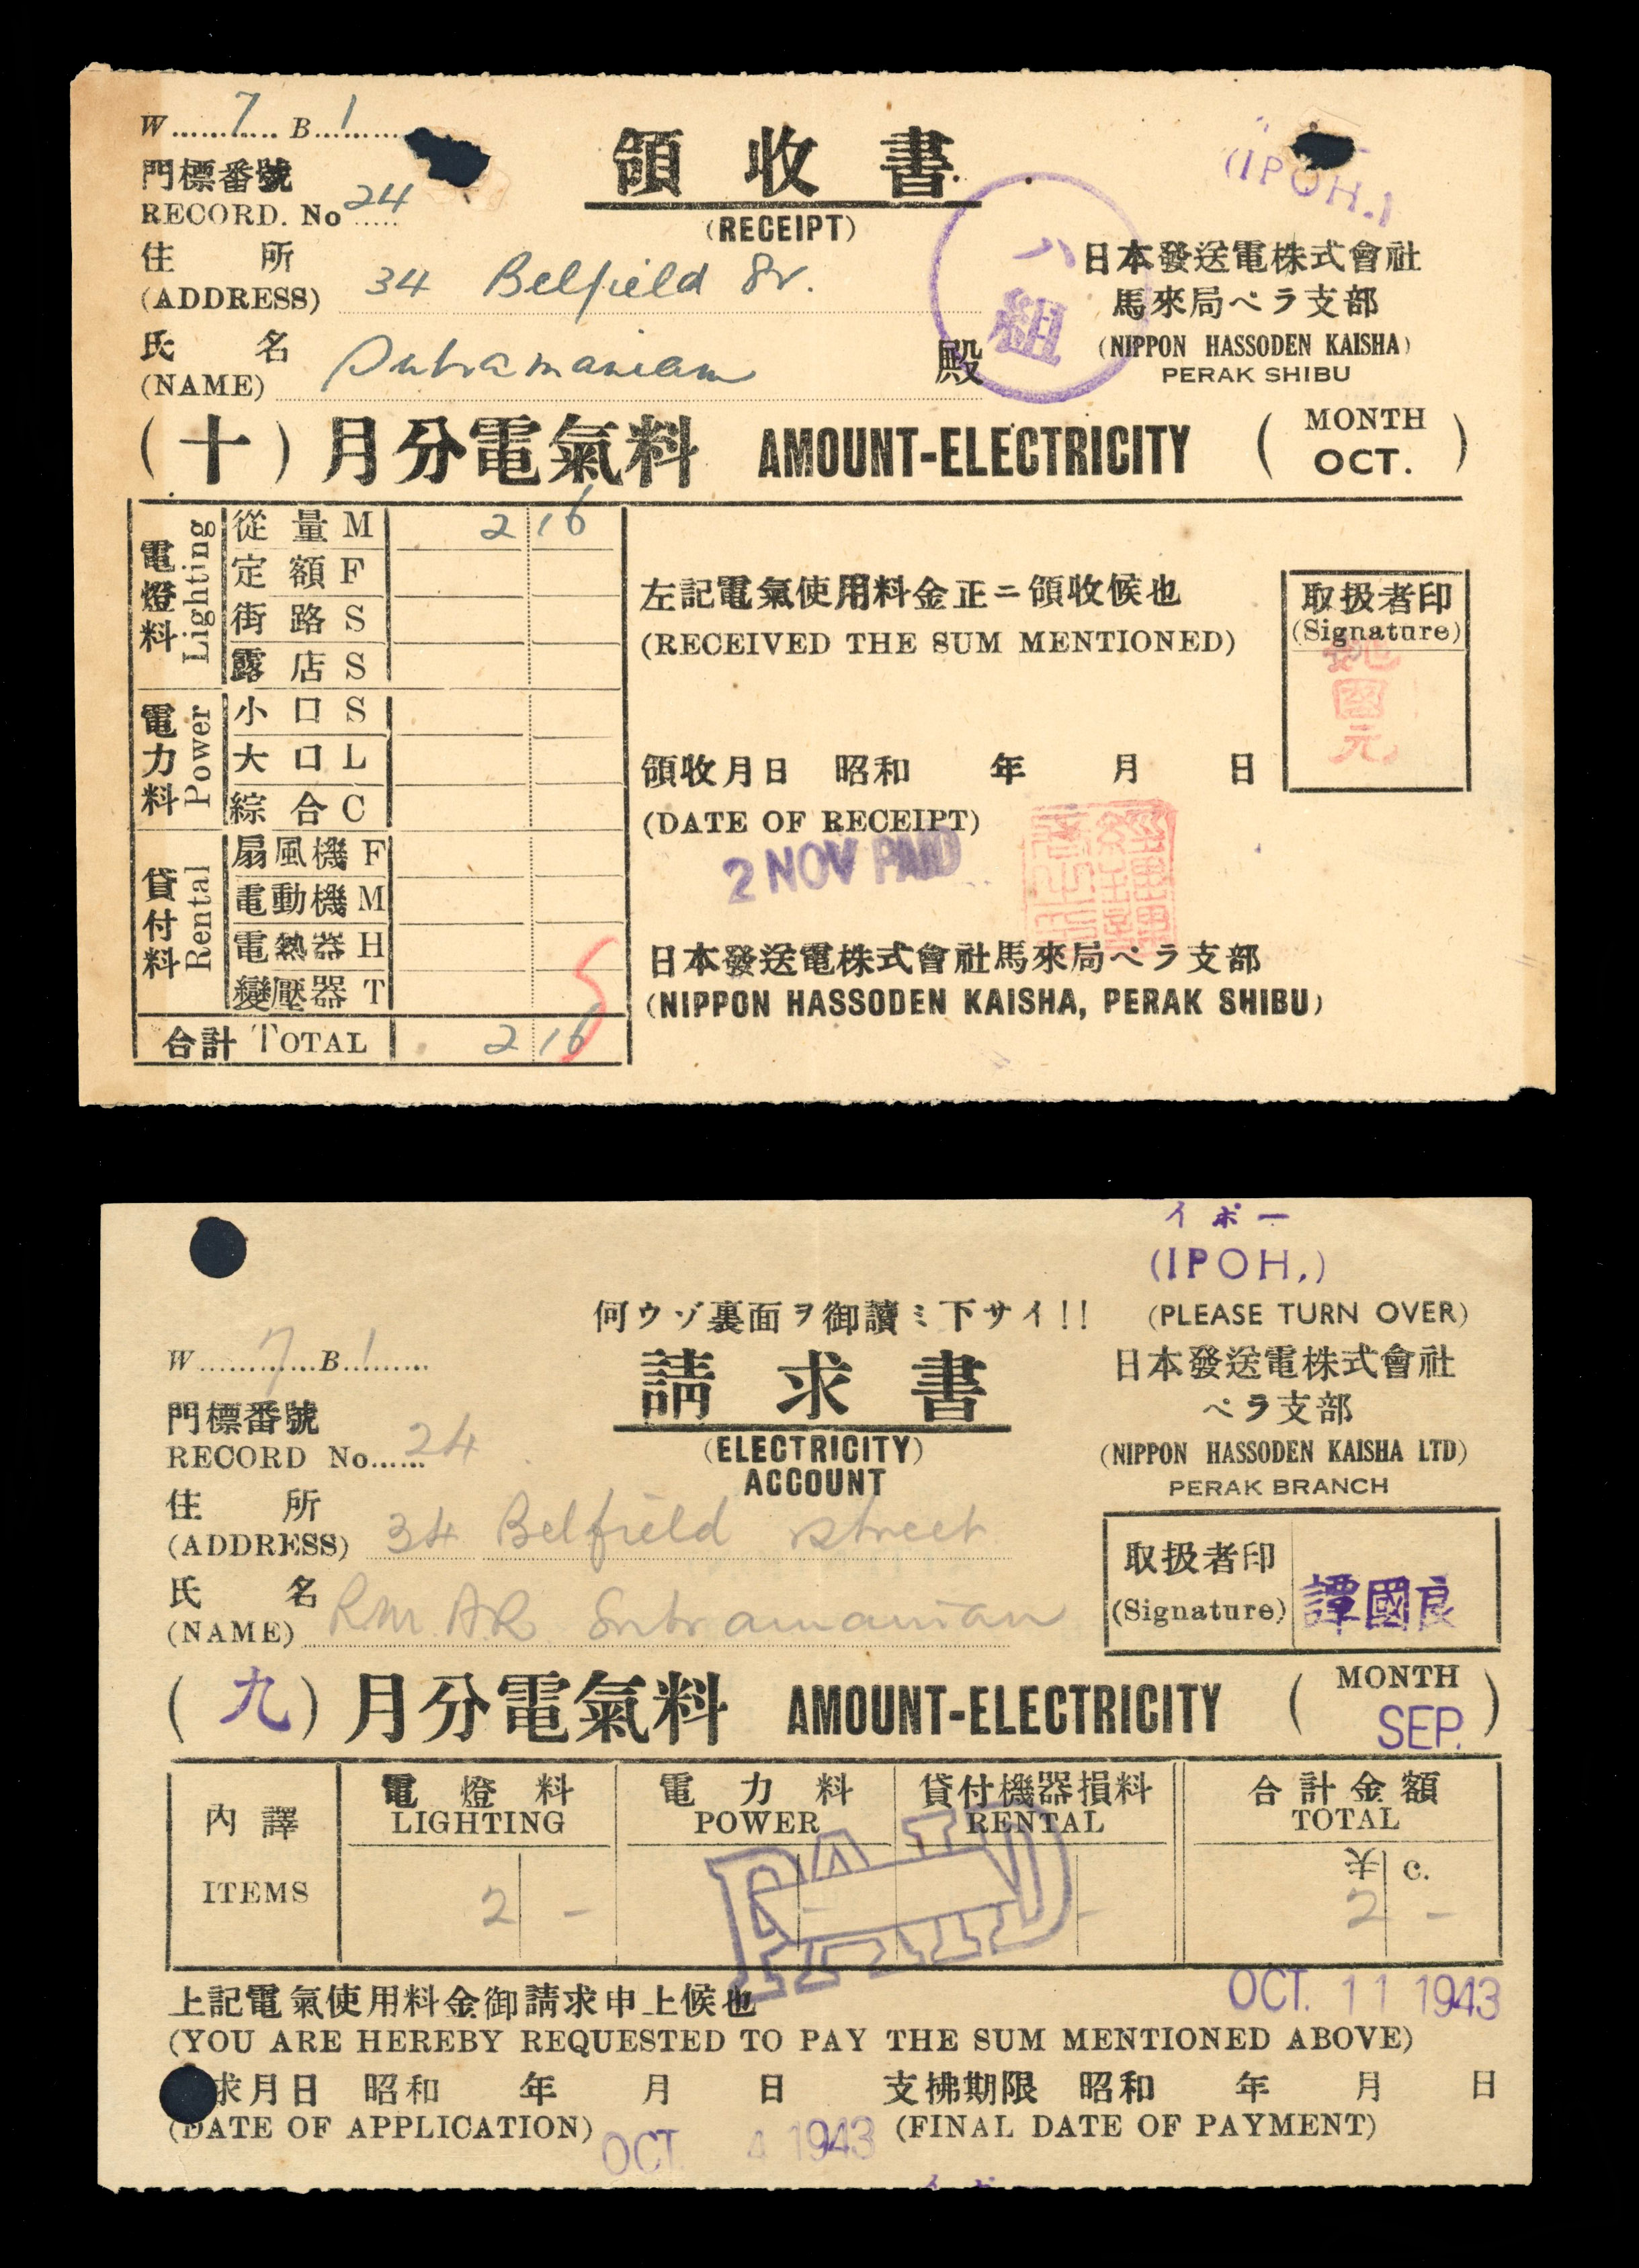 W......7..... B...1......
門標番號
RECORD. No 24
領收書
(RECEIPT)
(IPOH.)
住所
(ADDRESS) 34 Belfield St.
氏名
(NAME) Subramaniam 殿
八組
日本發送電株式會社
馬來局ペラ支部
(NIPPON HASSODEN KAISHA)
PERAK SHIBU
(十)月分電氣料 AMOUNT-ELECTRICITY (MONTH OCT.)
電燈料 Lighting
從量 M 2 16
定額 F
街路 S
露店 S
電力料 Power
小口 S
大口 L
綜合 C
貸付料 Rental
扇風機 F
電動機 M
電熱器 H
變壓器 T
合計 TOTAL 2 16
左記電氣使用料金正ニ領收候也
(RECEIVED THE SUM MENTIONED)
取扱者印
(Signature)
國元
領收月日 昭和 年 月 日
(DATE OF RECEIPT)
2 NOV PAID
日本發送電株式會社馬來局ペラ支部
(NIPPON HASSODEN KAISHA, PERAK SHIBU)
イポー
(IPOH,)
何ウゾ裏面ヲ御讀ミ下サイ!! (PLEASE TURN OVER)
W......7......B...1......
門標番號
RECORD No...... 24
請求書
(ELECTRICITY)
ACCOUNT
日本發送電株式會社
ペラ支部
(NIPPON HASSODEN KAISHA LTD)
PERAK BRANCH
住所
(ADDRESS) 34 Belfield Street
氏名
(NAME) RM. A.R. Subramanian
取扱者印
(Signature) 譚國良
(九)月分電氣料 AMOUNT-ELECTRICITY (MONTH SEP.)
內譯
ITEMS
電燈料
LIGHTING
電力料
POWER
貸付機器損料
RENTAL
合計金額
TOTAL
¥ c.
2 - - - 2 -
PAID
上記電氣使用料金御請求申上候也
OCT. 11 1943
(YOU ARE HEREBY REQUESTED TO PAY THE SUM MENTIONED ABOVE)
求月日 昭和 年 月 日 支拂期限 昭和 年 月 日
(DATE OF APPLICATION) OCT. 4 1943 (FINAL DATE OF PAYMENT)